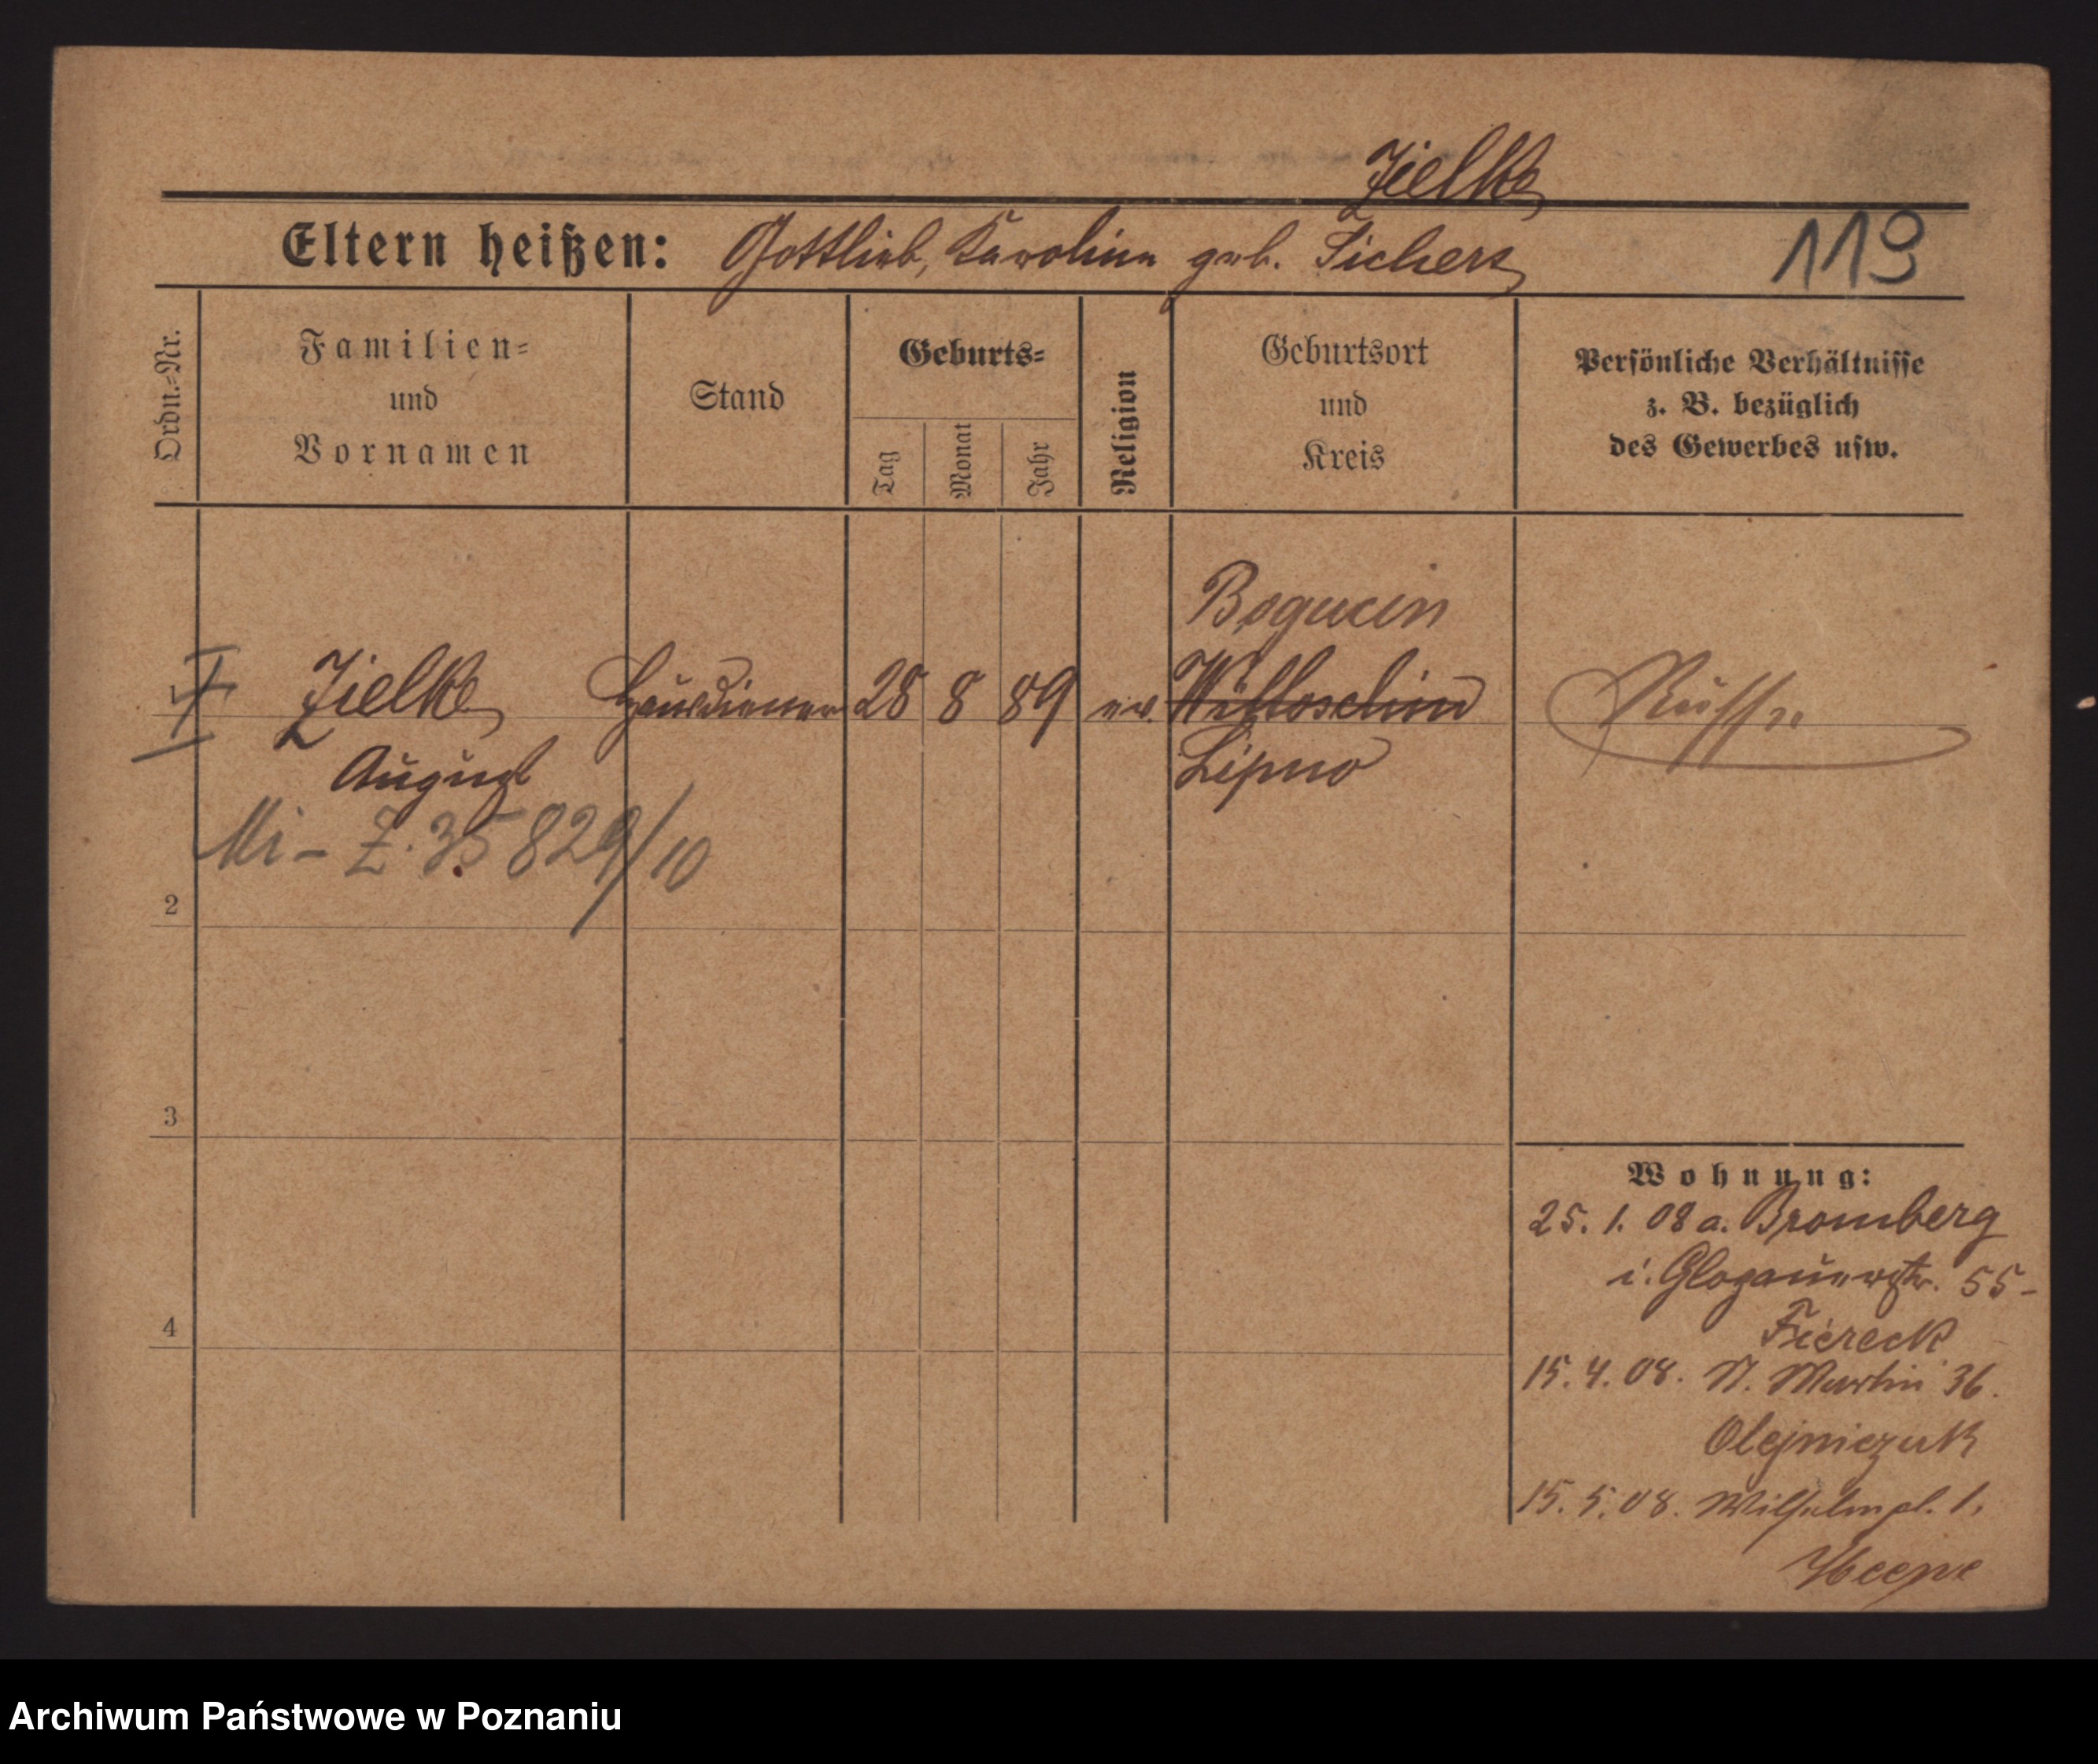 Zielke
Eltern heißen: Gottlieb, Karoline geb. Tichert
119
Ordn.=Nr.
Familien=
und
Vornamen
Stand
Geburts=
Tag
Monat
Jahr
Religion
Geburtsort
und
Kreis
Persönliche Verhältnisse
z. B. bezüglich
des Gewerbes usw.
Bogucin
Zielke Hausdiener 28 8 89 ev. Russe
August Lipno
Mi - Z. 35829/10
2
3
4
Wohnung:
25. 1. 08 a. Bromberg
i. Glogauerstr. 55-
Fiereck
15. 4. 08. St. Martin 36.
Olejniczak
15. 5. 08. Wilhelmpl. 1.
Archiwum Państwowe w Poznaniu